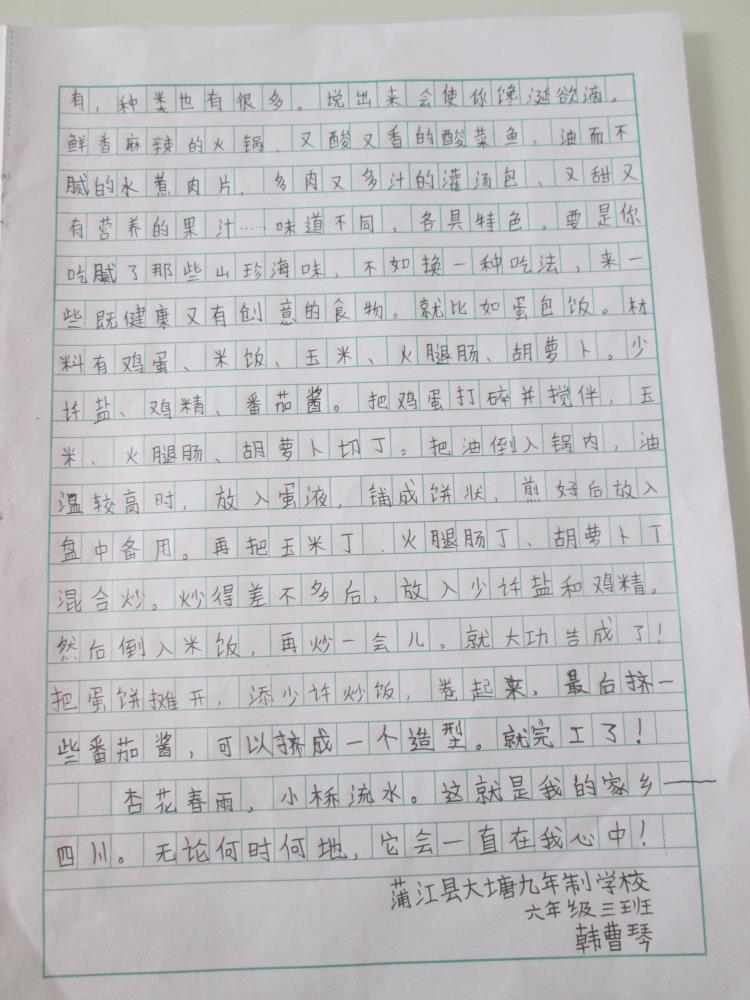 有，种类也有很多。说出来会使你馋涎欲滴。
鲜香麻辣的火锅、又酸又香的酸菜鱼、油而不
腻的水煮肉片、多肉又多汁的灌汤包、又甜又
有营养的果汁……味道不同，各具特色。要是你
吃腻了那些山珍海味，不如换一种吃法，来一
些既健康又有创意的食物。就比如蛋包饭。材
料有鸡蛋、米饭、玉米、火腿肠、胡萝卜。少
许盐、鸡精、番茄酱。把鸡蛋打碎并搅伴，玉
米、火腿肠、胡萝卜切丁。把油倒入锅内，油
温较高时，放入蛋液，铺成饼状，煎好后放入
盘中备用。再把玉米丁、火腿肠丁、胡萝卜丁
混合炒。炒得差不多后，放入少许盐和鸡精。
然后倒入米饭，再炒一会儿。就大功告成了！
把蛋饼摊开，添少许炒饭，卷起来，最后挤一
些番茄酱，可以挤成一个造型。就完工了！
杏花春雨，小桥流水。这就是我的家乡——
四川。无论何时何地，它会一直在我心中！
蒲江县大塘九年制学校
六年级三班
韩曹琴